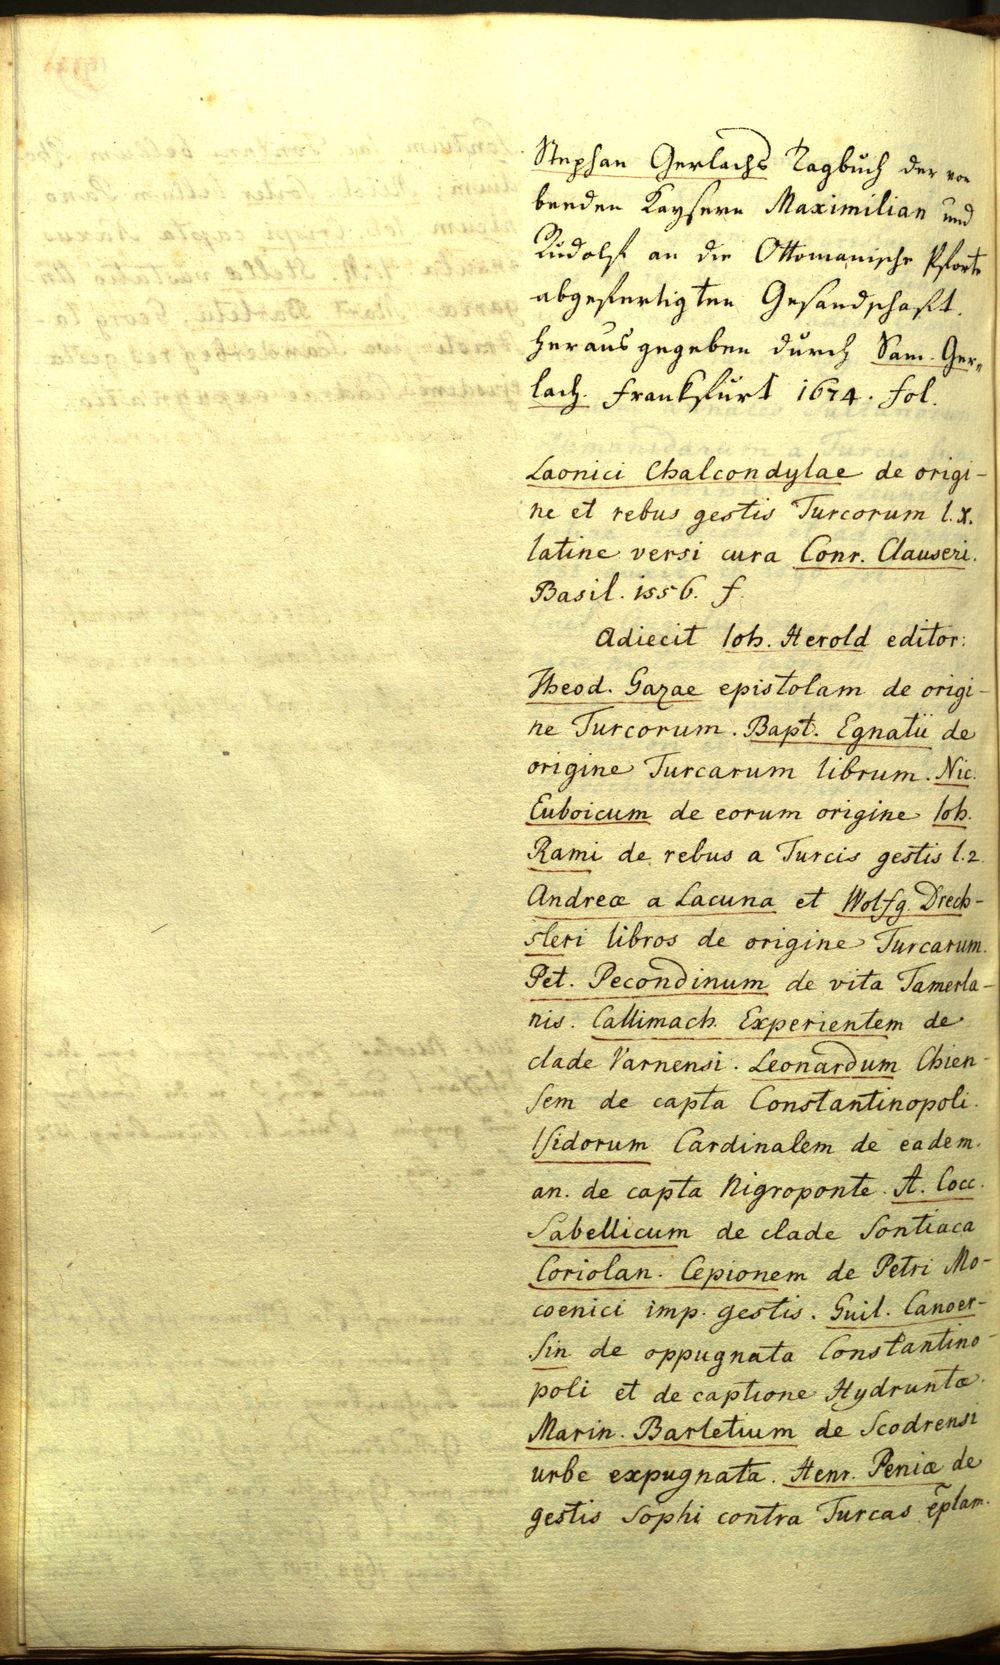 Stephan Gerlachs Tagbuch der von
beeden Kaysern Maximilian und
Rudolf an die Ottomanische Pforte
abgefertigten Gesandschaft.
herausgegeben durch Sam. Ger„
lach. Frankfurt 1674. fol.
Laonici Chalcondylae de origi-
ne et rebus gestis Turcorum l. X.
latine versi cura Conr. Clauseri.
Basil. 1556. f.
Adiecit Ioh. Herold editor:
Theod. Gazae epistolam de origi-
ne Turcorum. Bapt. Egnatii de
origine Turcarum librum. Nic.
Euboicum de eorum origine Ioh.
Rami de rebus a Turcis gestis l. 2
Andreæ a Lacuna et Wolfg. Drech-
sleri libros de origine Turcarum.
Pet. Pecondinum de vita Tamerla-
nis. Callimach. Experientem de
clade Varnensi. Leonardum Chien-
sem de capta Constantinopoli.
Isidorum Cardinalem de eadem.
an. de capta Nigroponte. A. Cocc.
Sabellicum de clade Sontiaca
Coriolan. Cepionem de Petri Mo-
coenici imp. gestis. Guil. Canoer-
sin. de oppugnata Constantino-
poli et de captione Hydruntæ.
Marin. Barletium de Scodrensi
urbe expugnata. Henr. Peniæ de
gestis Sophi contra Turcas ep̃lam.